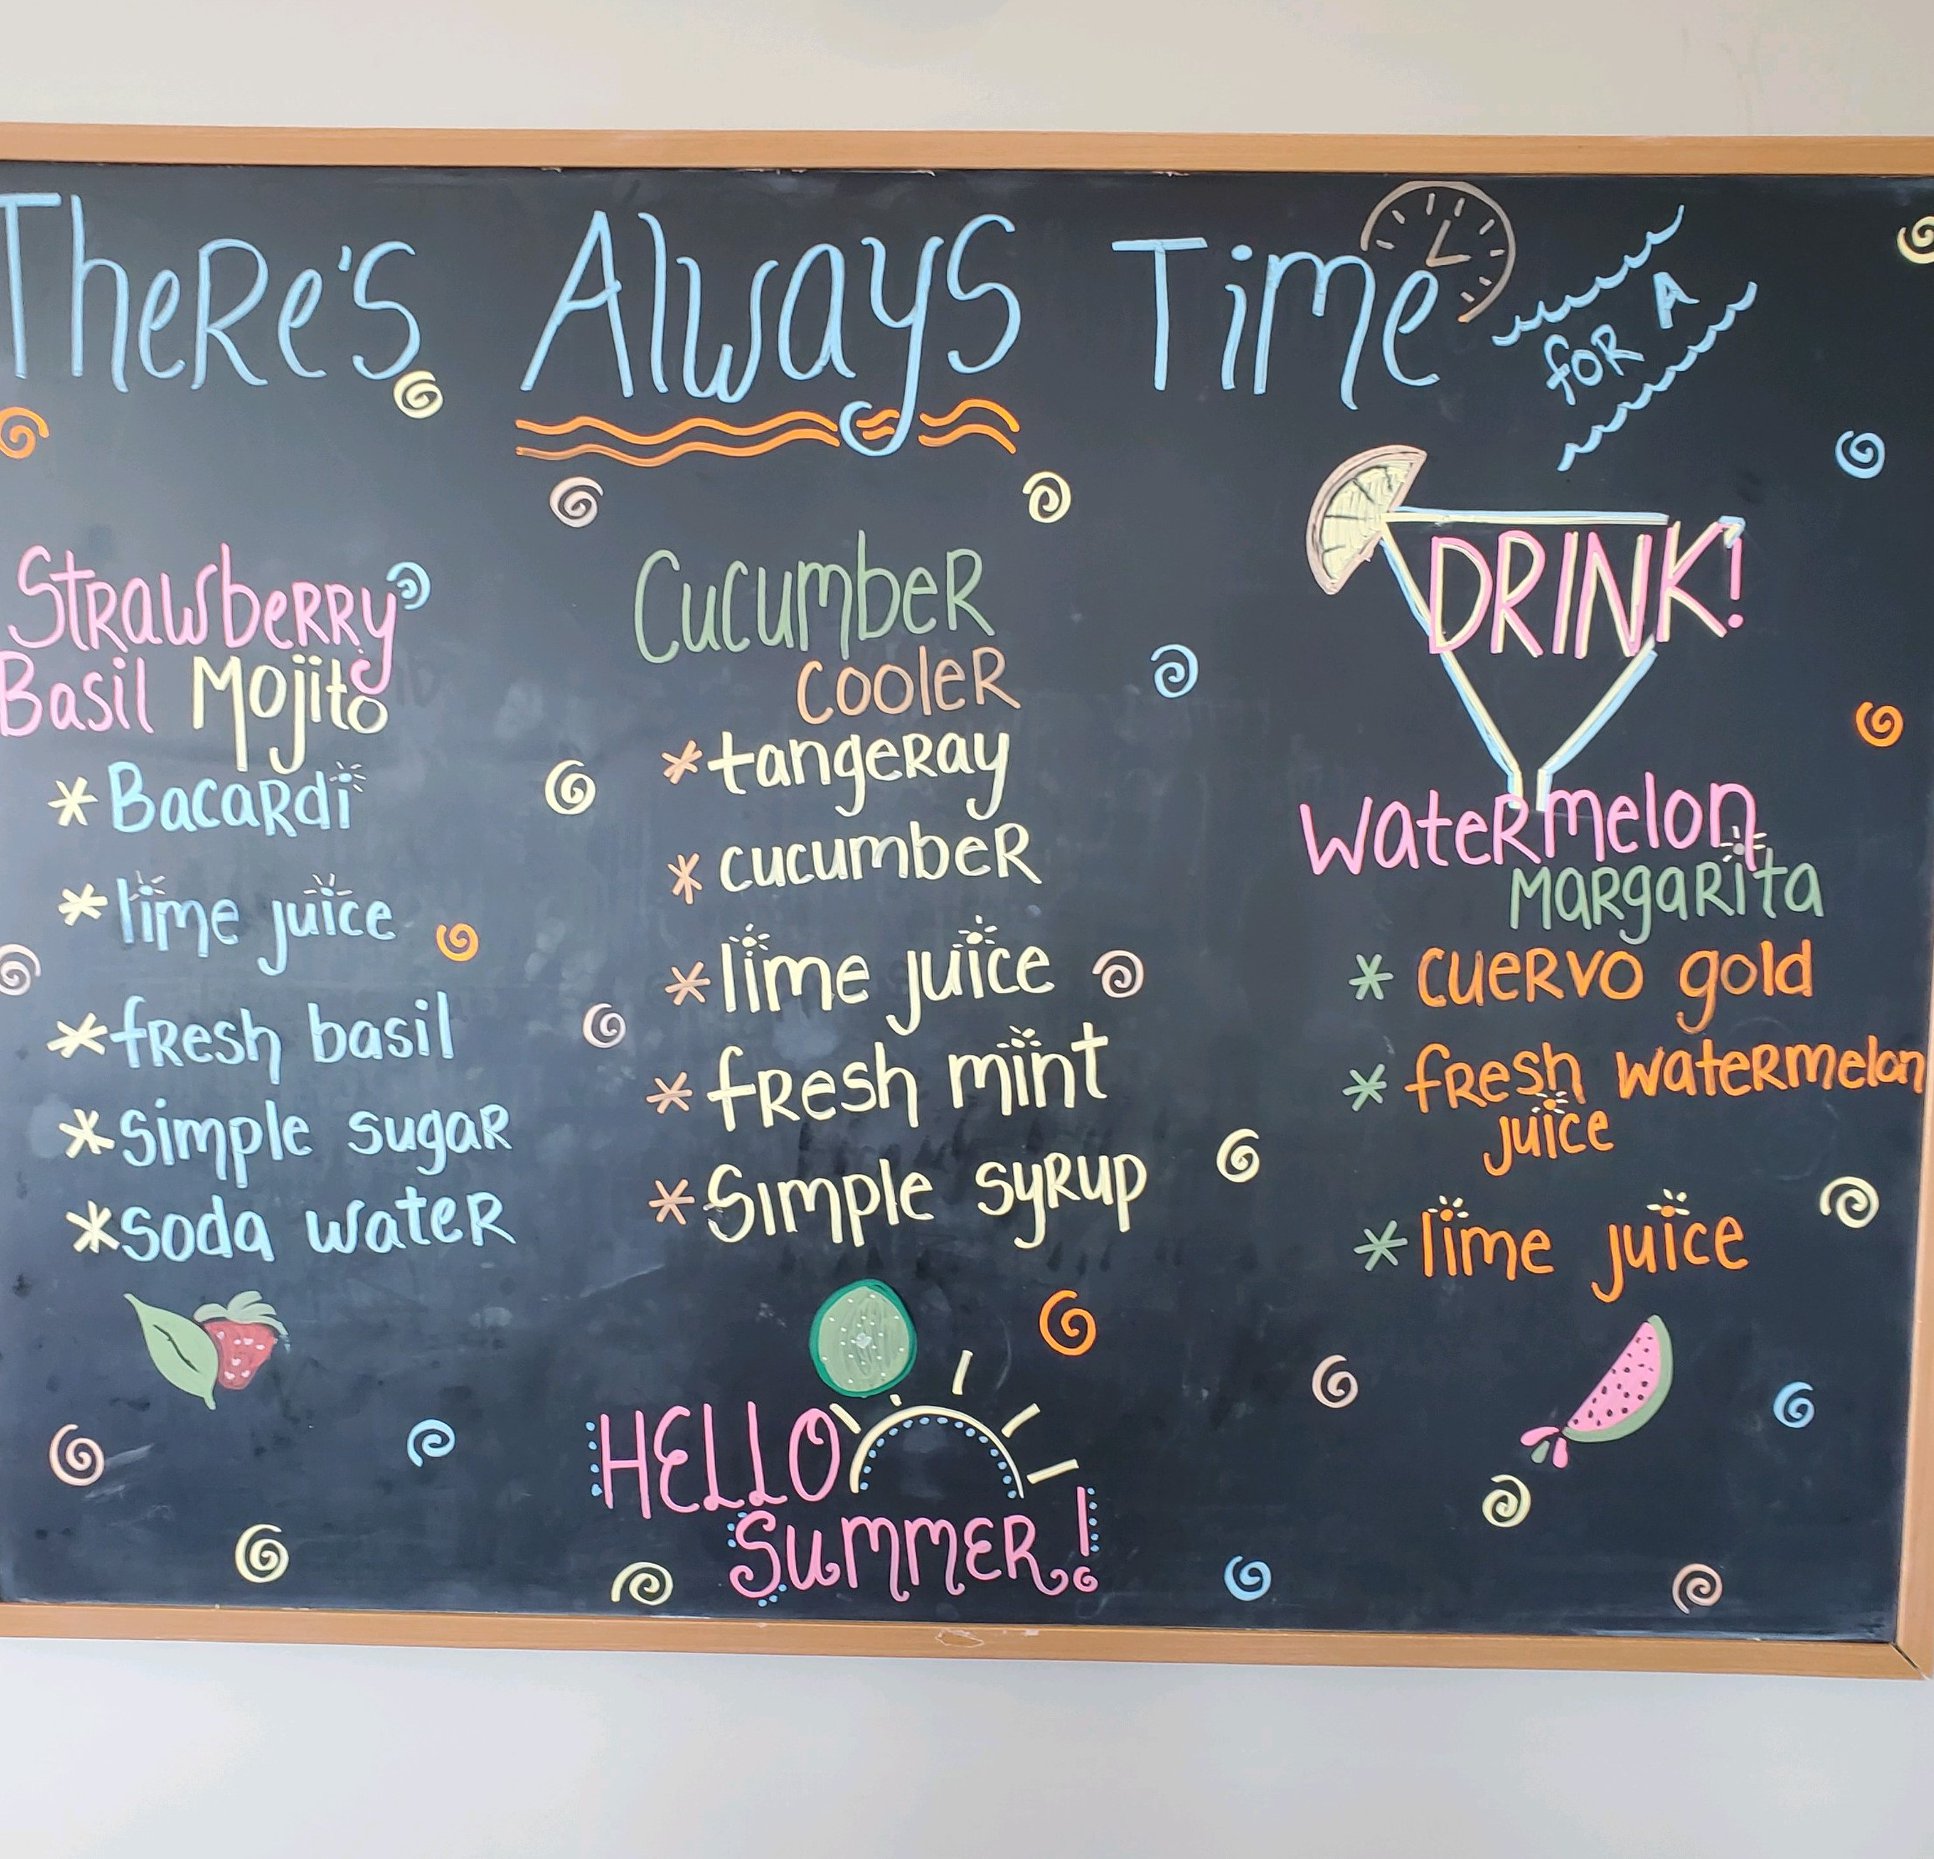 TheRe's Always Time
foR A
DRINK!
StRawbeRRy
Basil Mojito
*BacaRdi
*lime juice
*fResh basil
*simple sugaR
*soda wateR
CucumbeR
cooleR
*tangeRay
*cucumbeR
*lime juice
*fResh mint
*Simple syRup
WateRmelon
MaRgaRita
*cueRvo gold
*fResh wateRmelon
juice
*lime juice
HELLO
SUMMER!